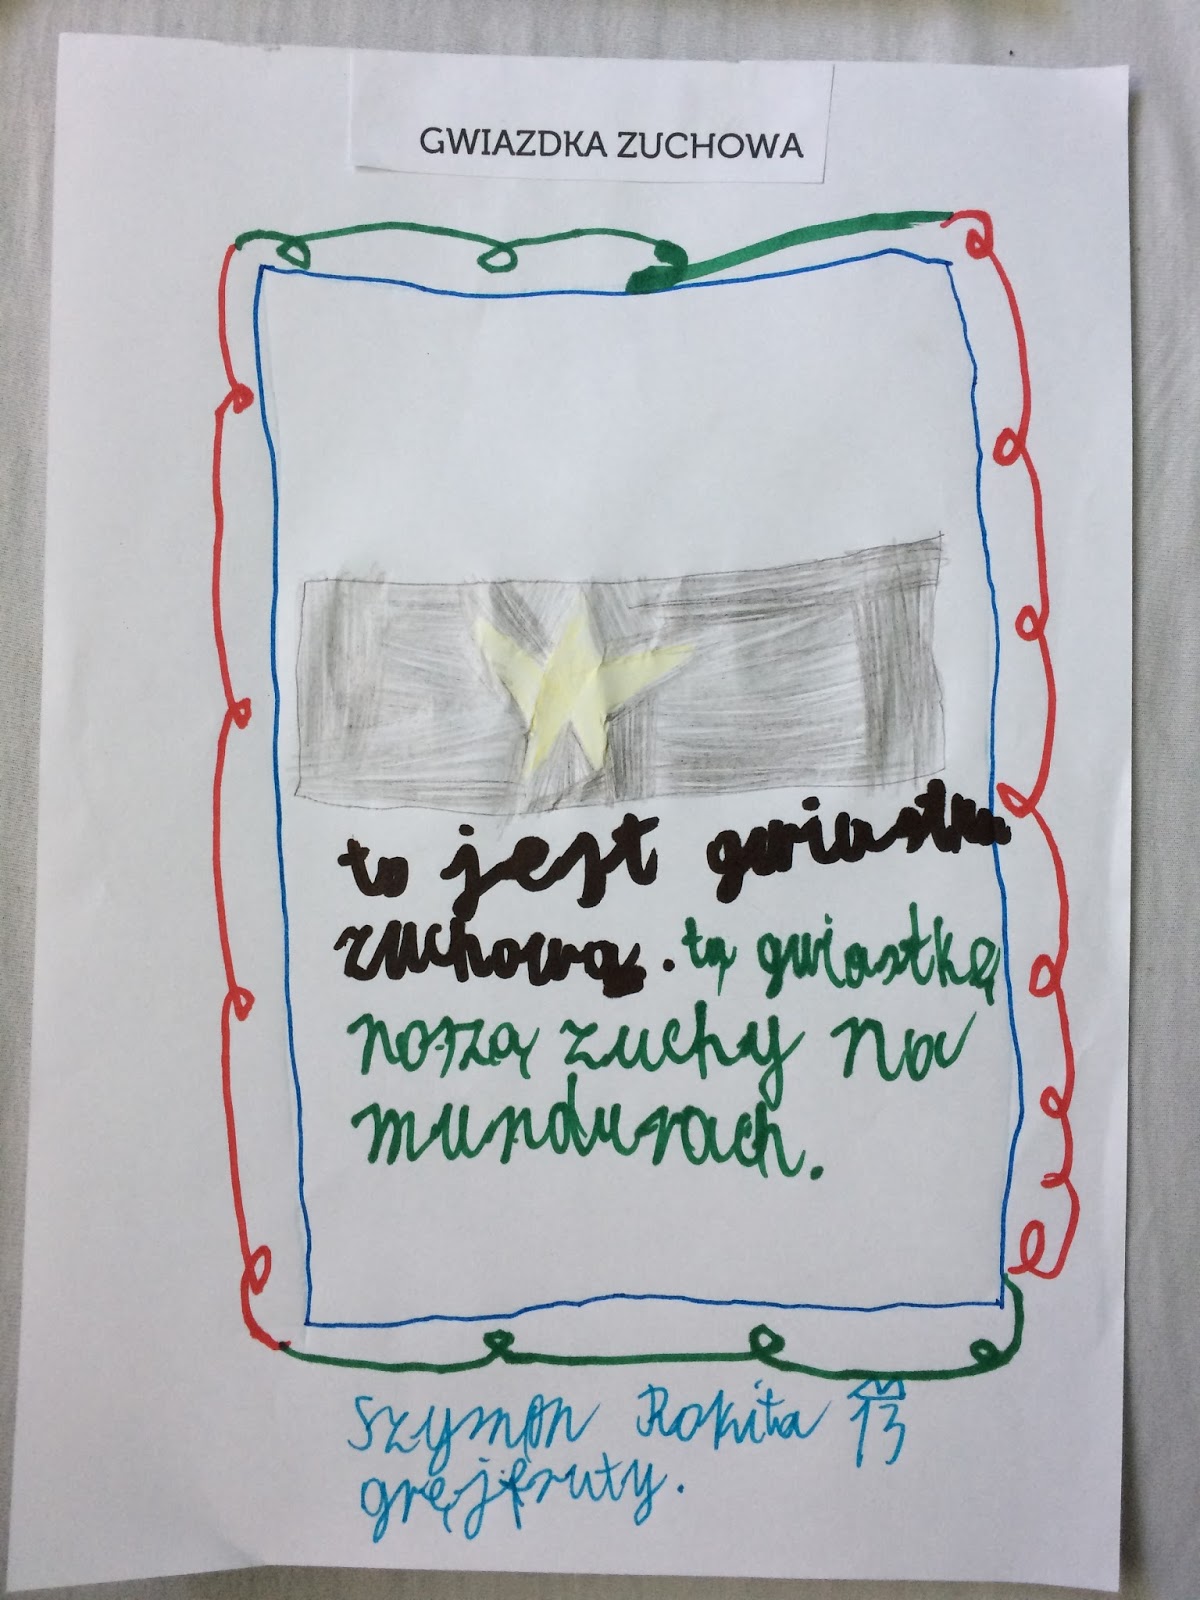 GWIAZDKA ZUCHOWA
to jest gwiastka
zuchowa. tą gwiastkę
noszą zuchy na
mundurach.
Szymon Rokita 13
gręjfruty.